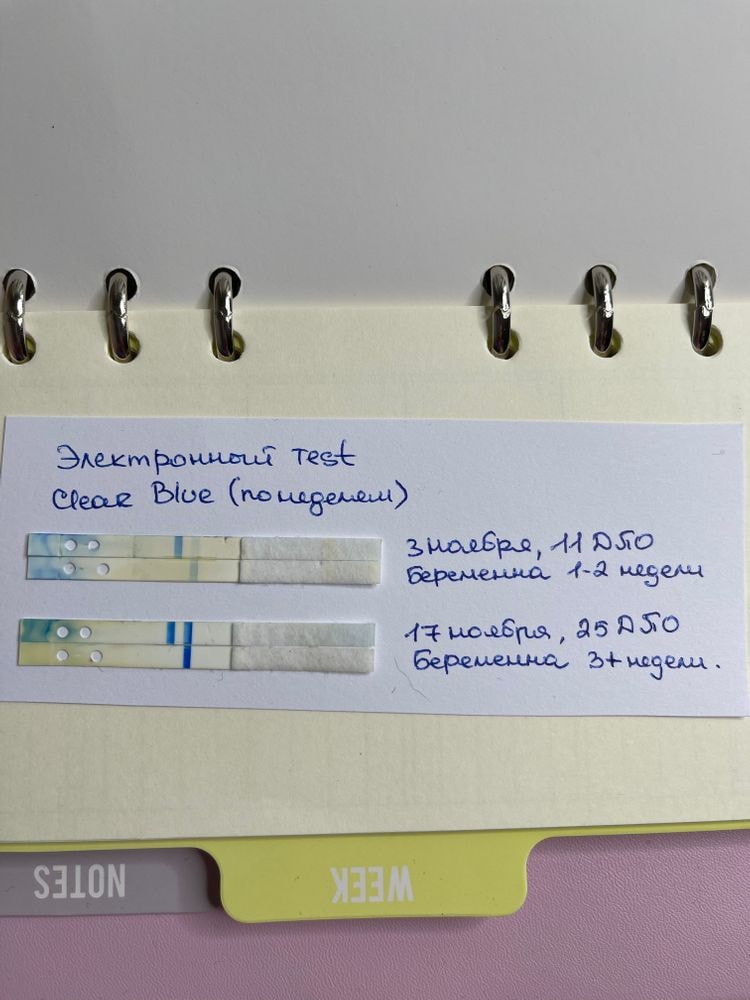 Электронный Test
Clear Blue (по неделям)
3 ноября, 11 ДПО
Беременна 1-2 недели
17 ноября, 25 ДПО
Беременна 3+ недели.
NOTES
WEEK